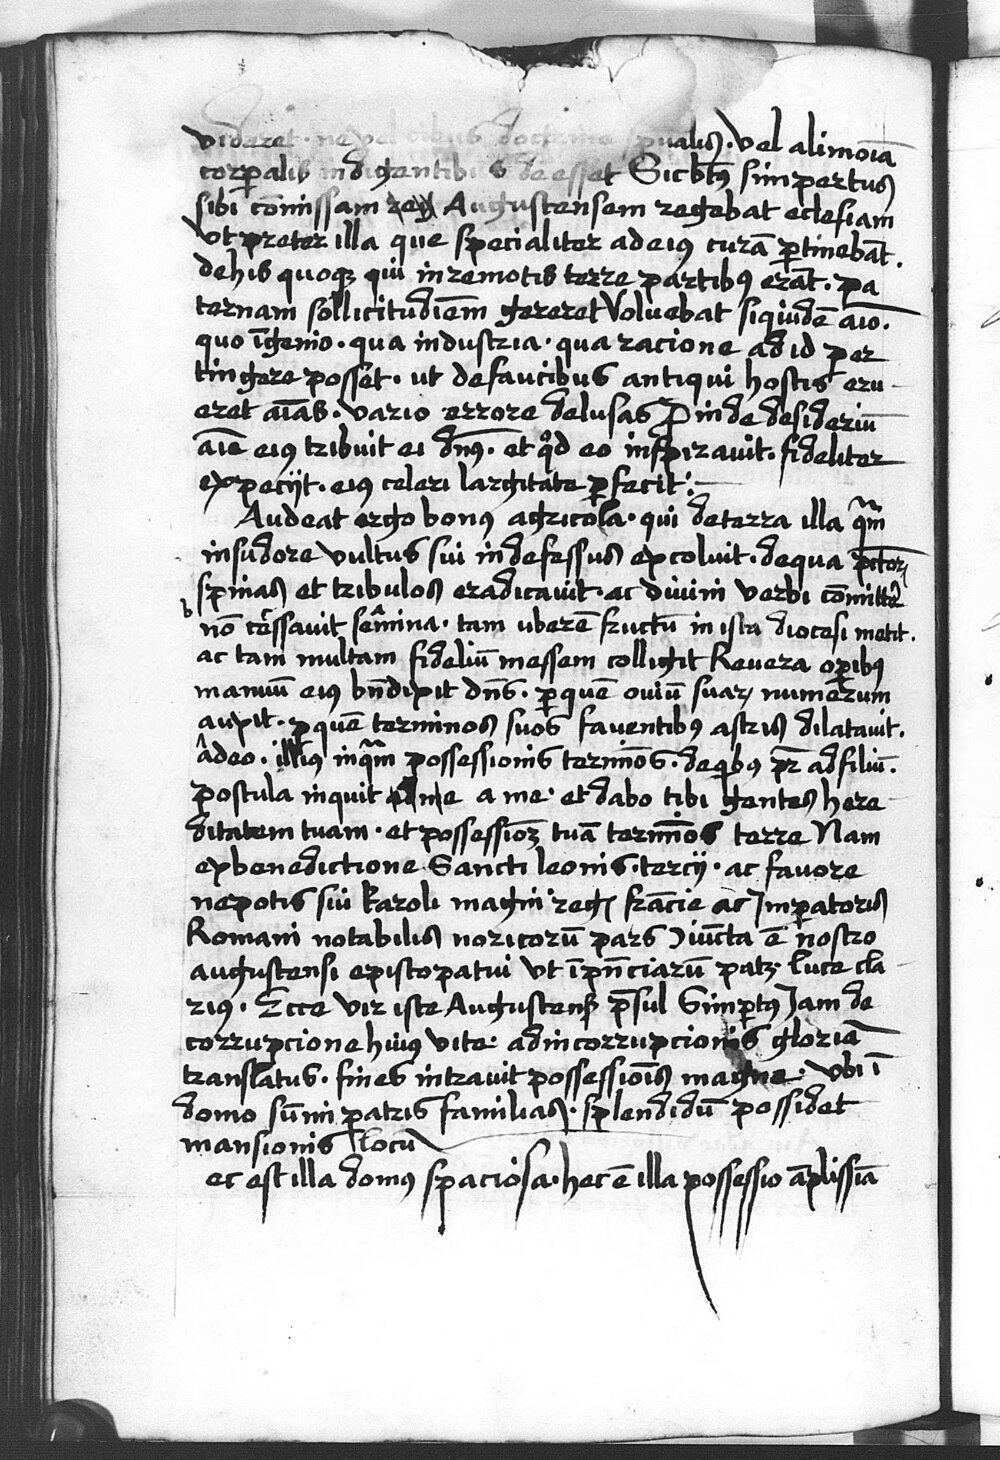 videret · ne vel cibus doctrine spūalis · vel alimoīa
corꝑalis indigentibus deesset Sic btūs simpertus
sibi cōmissam Augustensem regebat eclesiam
Vt preter illa que specialiter ad eiꝰ curā ꝑtinebāt .
de his quoqꝫ qui in remotis terre partibꝰ erāt · pa
ternam sollicitudīem gereret Voluebat siquidē aīo ·
quo īgenio · qua industria · qua racione ad id per
tingere posset · ut de faucibus antiqui hostis eru
eret aīas · vario errore delusas Proinde desideriū
aīe eiꝰ tribuit ei dn̄s · et qd eo inspirauit · fideliter
expeciit · eiꝰ celeri largitate ꝑfecit :
Audeat ergo bonꝰ agricola · qui de terra illa qm̄
in sudore vultus sui indefessus excoluit · de qua pctor
spinas et tribulos eradicauit · ac diuini verbi cōmitter
b nō cessauit semina · tam uberē fructū in ista diocesi metit .
ac tam multam fideliū messem colligit Reuera oꝑibꝰ
manuū eiꝰ bn̄dixit dn̄s · ꝑ quē ouiū suaꝝ numerum
auxit · ꝑ quē terminos suos fauentibꝰ astris dilatauit .
adeo · illius inqm̄ possessionis termīos · de qibꝰ pr̄ ad filiū .
postula inquit a me · et dabo tibi gentes here
ditatem tuam · et possessionē tuā termīos terre Nam
ex benedictione Sancti leonis · tercij · ac fauore
nepotis sui karoli magni reg francie ac Imꝑatoris
Romani notabilis noricorū pars Diūcta ē nostro
augustensi epistopatui vt ī pn̄ciarū patꝫ luce cla
rius · Ecce vir iste Augustens p̄sul Simꝑtꝰ Jam de
corrupcione huiꝰ vite · ad incorrupcionis gloriā
translatus · fines intrauit possessiōis magne · vbi ī
domo sūmi patris familias · splendidū possidet
mansionis locū
ec est illa domꝰ spaciosa · hec ē illa possessio āplissīa